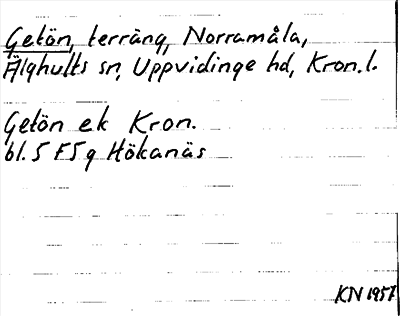 Getön, terräng, Norramåla,
Älghults sn, Uppvidinge hd, Kron.l.
Getön ek Kron.
bl. 5 F5g Hökanäs
KN 1957